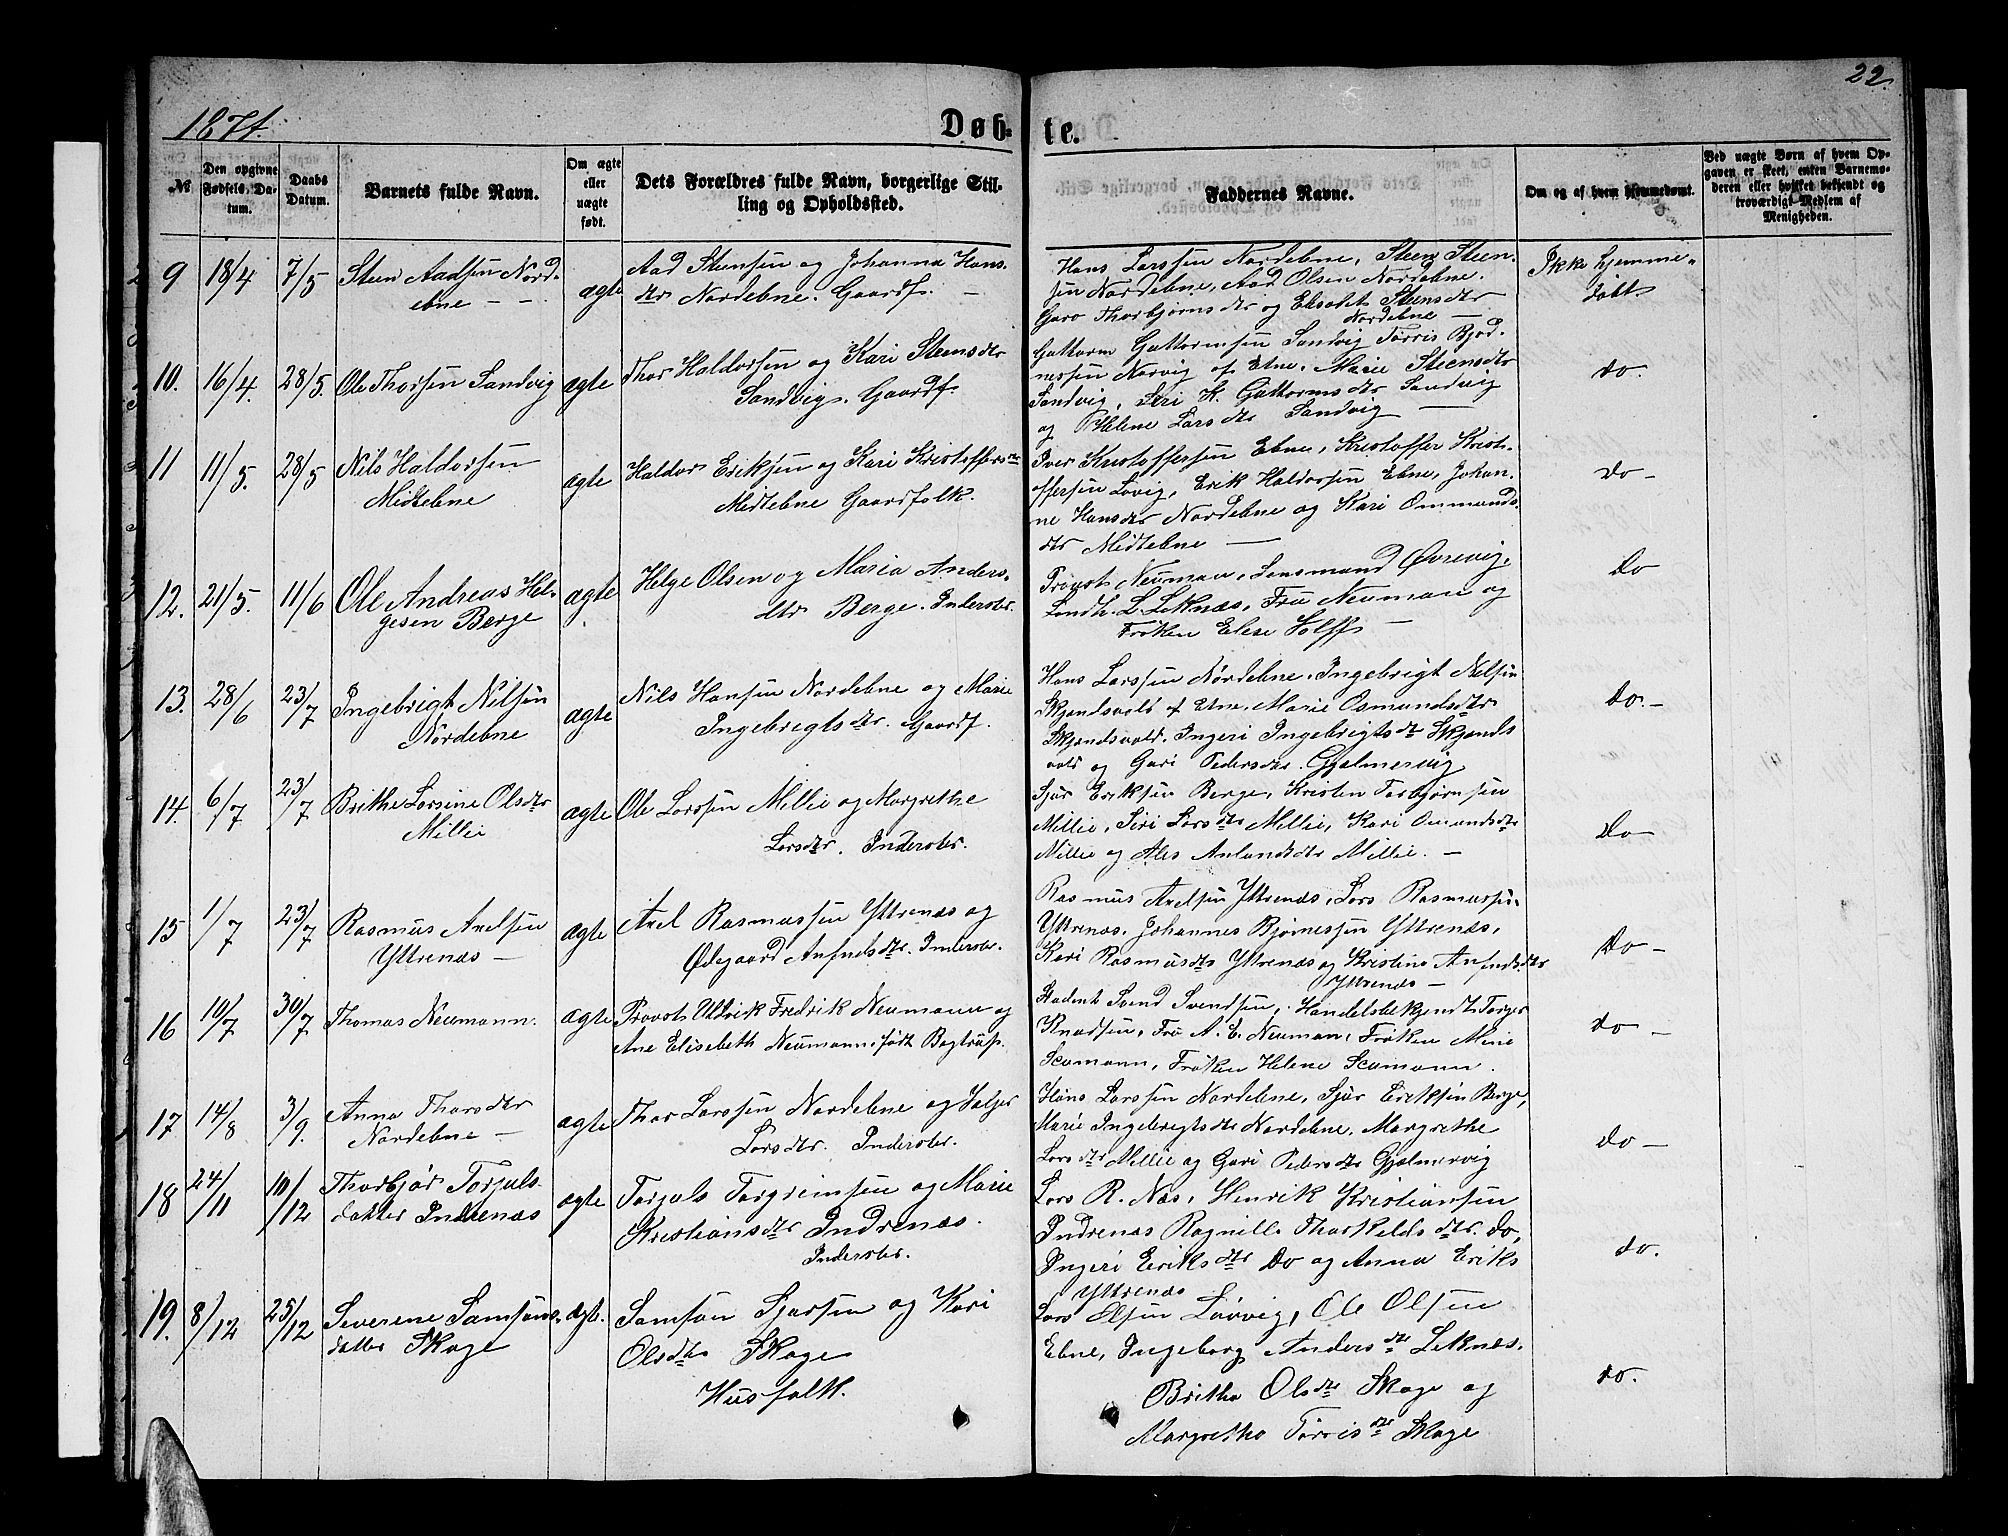 22.
1871.
Døb-te.
№
Den opgivne Fødsels-Datum.
Daabs Datum.
Barnets fulde Navn.
Om ægte eller uægte født.
Dets Forældres fulde Navn, borgerlige Stilling og Opholdssted.
Faddernes Navne.
Om og af hvem hjemmedøbt.
Ved uægte Børn af hvem Opgaven er skeet, enten Barnemoderen eller hvilket bekjendt og troværdigt Medlem af Menigheden.
9 18/4 7/5 Sten Aadsen Nord-
ebne - -
ægte
Aad Steensen og Johanna Hans-
dtr Nordebne. Gaardf. -
Hans Larssen Nordebne, Steen Steen-
sen Nordebne, Aad Olsen Nordebne.
Guro Thorbjørnsdtr og Elisabet Steensdtr
Nordebne -
Ikke hjemme-
døbt.
10. 16/4. 28/5. Ole Thorsen Sandvig
ægte
Thor Haldorsen og Kari Steensdtr
Sandvig. Gaardf.
Guttorm Guttormsen Sandvig Tørris Bjød-
nessen Norvig af Etne, Marie Steensdtr
Sandvig, Siri K. Guttormsdtr Sandvig
og Helene Larsdtr Sandvig -
do.
11 11/5. 28/5 Nils Haldorsen
Midtebne
ægte
Haldor Eriksen og Kari Kristoffersdtr
Midtebne Gaardfolk.
Iver Kristoffersen Ebne, Kristoffer Krist-
offersen Løvig, Erik Haldorsen Ebne, Johan-
ne Hansdtr Nordebne og Kari Ommunds-
dtr Midtebne -
do -
12. 21/5. 11/6 Ole Andreas Hel-
gesen Berge
ægte
Helge Olsen og Maria Anders-
dtr Berge. Inderster.
Provst Neuman, Lensmand Øvrevig,
Landh. L. Leknæs, Fru Neuman og
Frøken Elise Wolff -
Do
13. 28/6 23/7 Ingebrigt Nilsen
Nordebne
ægte
Nils Hansen Nordebne og Marie
Ingebregtsdtr. Gaardf.
Hans Larssen Nordebne, Ingebrigt Nilsen
Skjændsvold af Etne, Marie Osmundsdtr
Skjændsvold. Ingeri Ingebrigtsdtr Skjænds
vold og Guri Pedersdtr. Gjelmervig
Do. -
14. 6/7 23/7 Brithe Larsine Olsdtr
Millie
ægte
Ole Larssen Millie og Margrethe
Larsdtr. Inderster.
Sjur Eriksen Berge, Kristen Torbjørnsen
Millie, Siri Larsdtr Millie, Kari Omundsdtr
Millie og Ales Anlaudsdtr Millie. -
Do -
15 1/7 23/7 Rasmus Axelsen
Yttrenæs -
ægte
Axel Rasmussen Yttrenæs og
Ødegaard Anfindsdtr. Inderster.
Rasmus Axelsen Yttrenæs, Lars Rasmussen
Yttrenæs. Johannes Bjørnessen Yttrenæs,
Kari Rasmusdtr Yttrenæs og Kristine Anfindsdtr
Yttrenæs -
Do -
16 10/7 30/7 Thomas Neumann.
ægte
Provst Uldrik Fredrik Neumann og
Ane Elisabeth Neumann, født Bagtrup.
Student Svend Svendsen, Handelsbetjendt Torger
Knudsen, Fru A. E. Neuman, Frøken Mine
Scumann, Frøken Helene Scumann.
do -
17 14/8 3/9. Anna Thorsdtr
Nordebne -
ægte
Thor Larssen Nordebne og Valger
Larsdtr. Inderster.
Hans Larssen Nordebne, Sjur Eriksen Berge,
Marie Ingebregtsdtr Nordebne. Margrethe
Larsdtr Millie og Guri Pedersdtr Gjelmervig
do -
18 24/11 10/12 Thorbjør Torjuls-
datter Indrenæs
ægte
Torjuls Torgrimsen og Marie
Kristiansdtr Indrenæs.
Inderster.
Lars R. Næs, Henrik Kristiansen
Indrenæs Ragnille Thorkeldsdtr. do,
Ingeri Eriksdtr Do og Anna Eriks
Yttrenæs
do.
19. 8/12 25/12 Severene Samsons-
datter Skoge
ægt.
Samson Sjursen og Kari
Olsdtr Skoge
Husfolk.
Lars Olsen Løvvig, Ole Olsen
Ebne, Ingeborg Andersdtr Leknæs.
Britha Olsdtr Skoge og
Margretha Tørrisdtr Skoge
do.